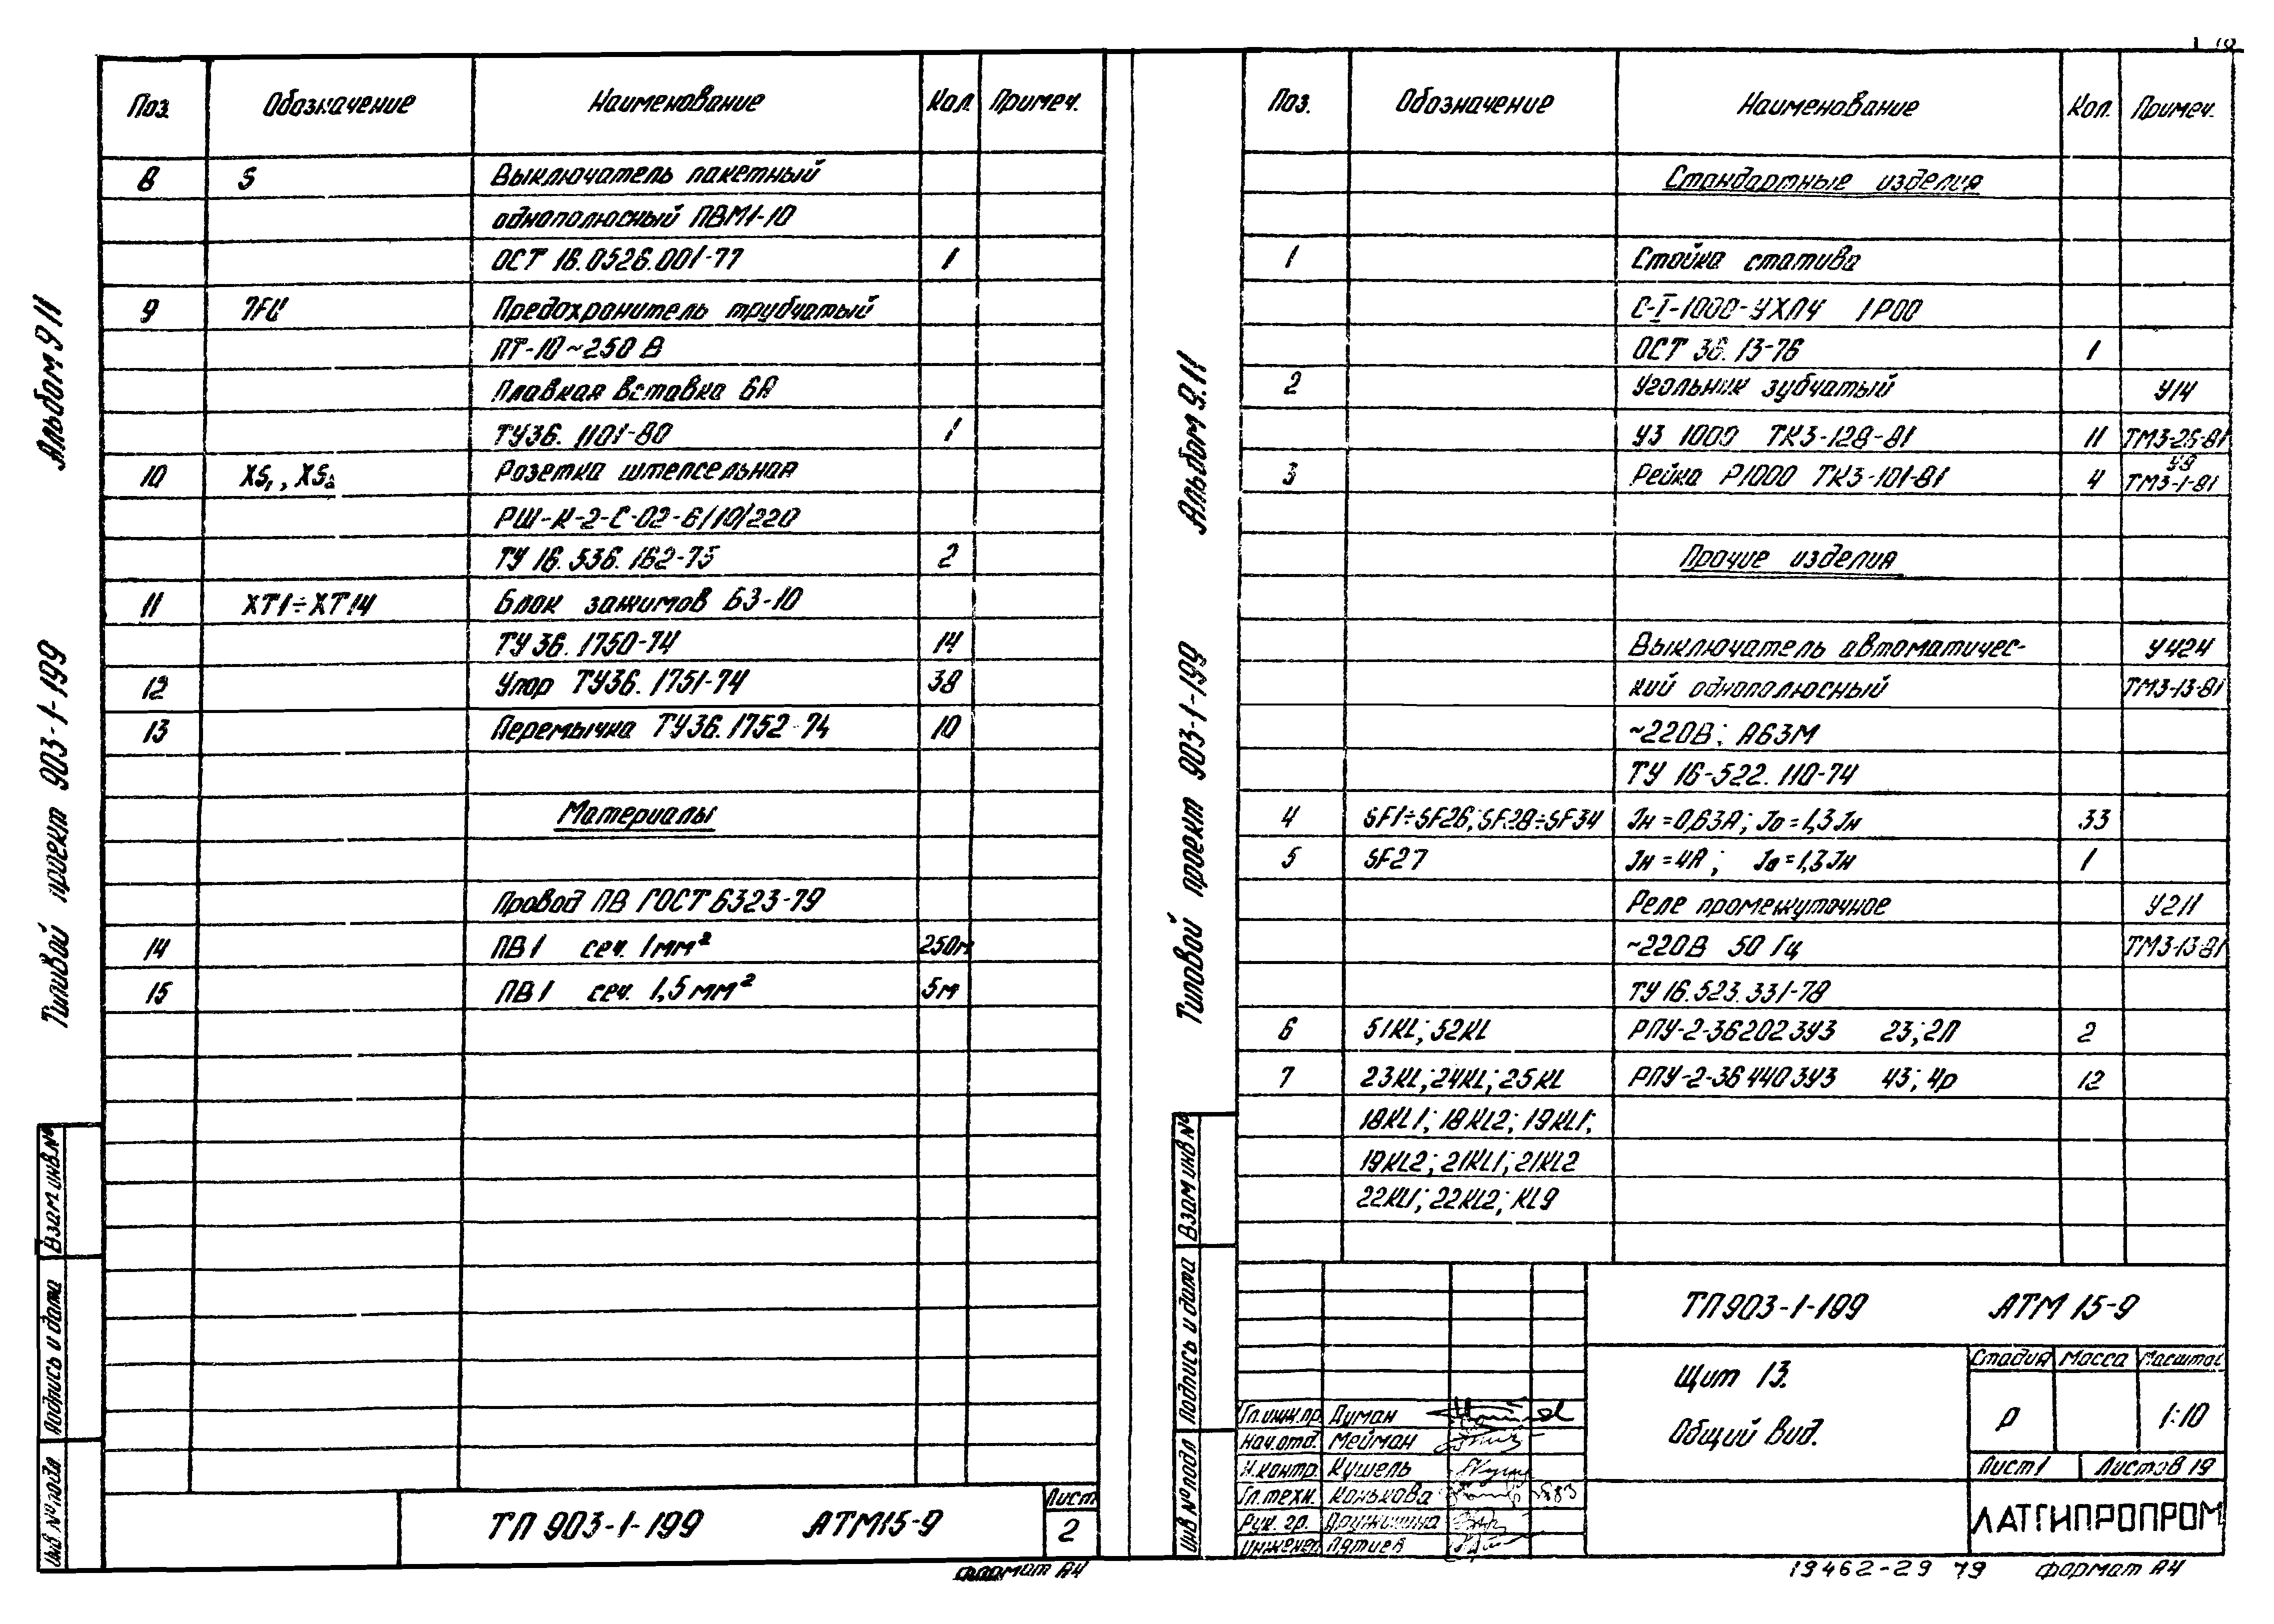 Поз. Обозначение Наименование Кол. Примеч.
8 S Выключатель пакетный
однополюсный ПВМ1-10
ОСТ 16.0526.001-77 1
9 7FU Предохранитель трубчатый
ПТ-10 ~250 В
Плавкая вставка 6А
ТУ36.1101-80 1
10 XS1, XS2 Розетка штепсельная
РШ-К-2-С-02-6/10/220
ТУ 16.536.162-75 2
11 XT1÷XT14 Блок зажимов БЗ-10
ТУ 36.1750-74 14
12 Упор ТУ36.1751-74 38
13 Перемычка ТУ36.1752-74 10
Материалы
Провод ПВ ГОСТ 6323-79
14 ПВ1 сеч. 1мм² 250м
15 ПВ1 сеч. 1,5мм² 5м
ТП 903-1-199 АТМ15-9
Лист
2
формат А4
Альбом 9.11
Типовой проект 903-1-199
Взам инв.№
Подпись и дата
Инв. № подл
Поз. Обозначение Наименование Кол. Примеч.
Стандартные изделия
1 Стойка статива
С-I-1000-УХЛ4 IP00
ОСТ 36.13-76 1
2 Угольник зубчатый У14
УЗ 1000 ТК3-128-81 11 ТМ3-26-81
У9
3 Рейка Р1000 ТК3-101-81 4 ТМ3-1-81
Прочие изделия
Выключатель автоматичес- У424
кий однополюсный ТМ3-13-81
~220В; А63М
ТУ 16-522.110-74
4 SF1÷SF26; SF28÷SF34 Jн=0,63А; Jо=1,3Jн 33
5 SF27 Jн=4А; Jо=1,3Jн 1
Реле промежуточное У211
~220В 50 Гц ТМ3-13-81
ТУ 16.523.331-78
6 51KL; 52KL РПУ-2-36202 3У3 2з; 2п 2
7 23KL; 24KL; 25KL РПУ-2-36 440 3У3 4з; 4р 12
18KL1; 18KL2; 19KL1;
19KL2; 21KL1; 21KL2
22KL1; 22KL2; KL9
ТП903-1-199 АТМ 15-9
Щит 13.
Общий вид.
Стадия Масса Масштаб
Р 1:10
Лист 1 Листов 19
ЛАТГИПРОПРОМ
Гл.инж.пр. Думан
Нач.отд. Мейман
Н.контр. Кушель
Гл.техн. Конькова
Рук. гр. Дружинина
Инженер
19462-29 79 формат А4
Альбом 9.11
Типовой проект 903-1-199
Взам инв.№
Подпись и дата
Инв № подл